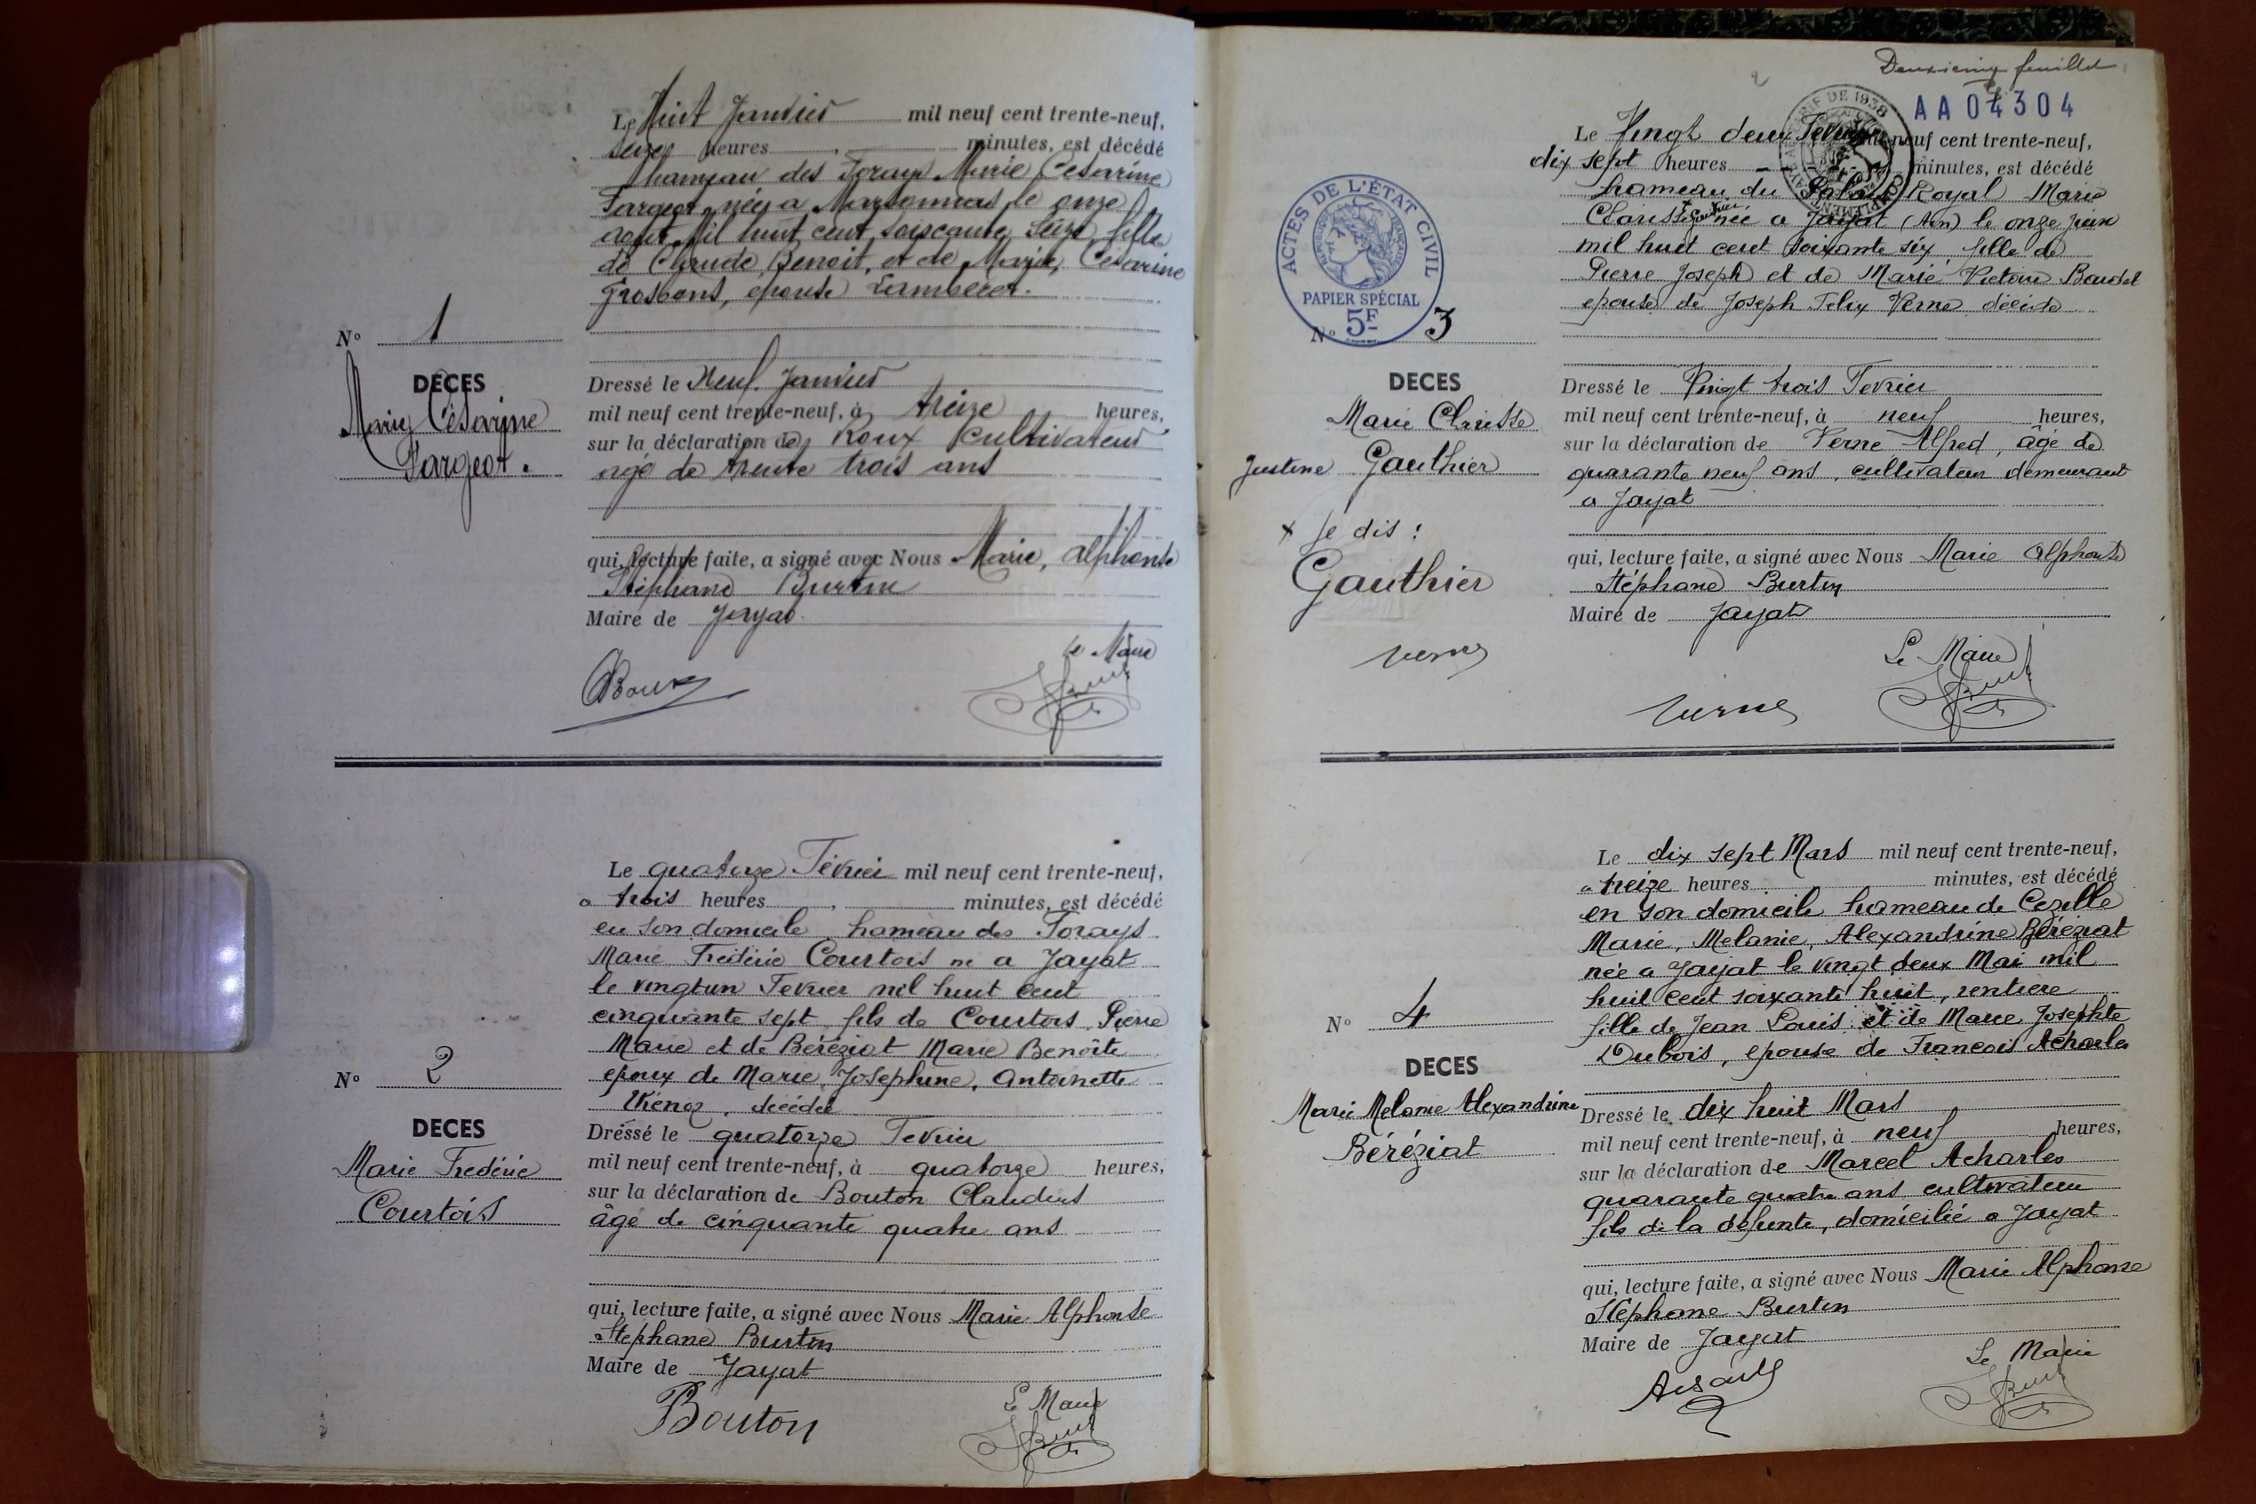 Le Huit Janvier mil neuf cent trente-neuf,
seize heures, minutes, est décédé
hameau des Forays Marie Césarine
Fargeot née a Marsonnas le onze
août mil huit cent soixante seize fille
de Claude Benoit, et de Marie, Césarine
Grosbons, epouse
N° 1
DECES
Marie Césarine
Fargeot.
Dressé le Neuf Janvier
mil neuf cent trente-neuf, à treize heures,
sur la déclaration de Roux cultivateur
agé de trente trois ans
qui, lecture faite, a signé avec Nous Marie, Alphonse
Stéphane Burtin
Maire de Jayat
Le Maire
Le quatorze Février mil neuf cent trente-neuf,
a trois heures, minutes, est décédé
en son domicile hameau des Forays
Marie Frédéric Courtois né a Jayat
le vingt un Fevrier mil huit cent
cinquante sept, fils de Courtois Pierre
Marie et de Béréziat Marie Benoîte
epoux de Marie, Joséphine, Antoinette
décédée
N° 2
DECES
Marie Frédéric
Courtois
Dressé le quatorze Fevrier
mil neuf cent trente-neuf, à quatorze heures,
sur la déclaration de Bouton Claudius
âgé de cinquante quatre ans
qui, lecture faite, a signé avec Nous Marie Alphonse
Stephane Burtin
Maire de Jayat
Bouton
Le Maire
Deuxième feuillet
AA 04304
Le Vingt deux Fevrier mil neuf cent trente-neuf,
dix sept heures minutes, est décédé
hameau du Palais Royal Marie
Clarisse + Gauthier née a Jayat (Ain) le onze juin
mil huit cent soixante six, fille de
Pierre Joseph et de Marie Victoire Baudet
epouse de Joseph Felix Verne décédé
ACTES DE L'ÉTAT CIVIL
PAPIER SPÉCIAL
5F
N° 3
DECES
Marie Clarisse
Justine Gauthier
x je dis :
Gauthier
Verne
Dressé le Vingt trois Fevrier
mil neuf cent trente-neuf, à neuf heures,
sur la déclaration de Verne Alfred, âgé de
quarante neuf ans, cultivateur demeurant
a Jayat
qui, lecture faite, a signé avec Nous Marie Alphonse
Stéphane Burtin
Maire de Jayat
Le Maire
Verne
Le dix sept Mars mil neuf cent trente-neuf,
a treize heures minutes, est décédé
en son domicile hameau de Cezille
Marie, Melanie, Alexandrine Béréziat
née a Jayat le vingt deux Mai mil
huit cent soixante huit, rentiere
fille de Jean Louis et de Marie Josephte
Dubois, epouse de François Acharles
N° 4
DECES
Marie Melanie Alexandrine
Béréziat
Dressé le dix huit Mars
mil neuf cent trente-neuf, à neuf heures,
sur la déclaration de Marcel Acharles
quarante quatre ans cultivateur
fils de la défunte, domicilié a Jayat
qui, lecture faite, a signé avec Nous Marie Alphonse
Stéphane Burtin
Maire de Jayat
Le Maire